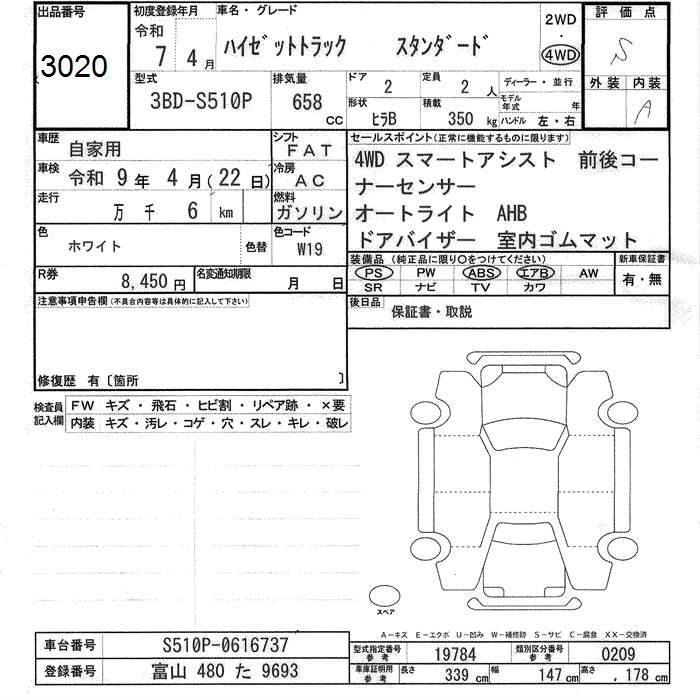 出品番号 3020
初度登録年月 令和 7 4 月
車名・グレード ハイゼットトラック スタンダード 2WD・4WD
評価点 S
外装 内装 A
型式 3BD-S510P
排気量 658 CC
ドア 2
定員 2 人
形状 ヒラB
積載 350 kg
ディーラー・並行
モデル年式 年
ハンドル 左・右
車歴 自家用
シフト FAT
車検 令和 9 年 4 月(22 日)
冷房 AC
走行 万 千 6 km
燃料 ガソリン
色 ホワイト 色替
色コード W19
R券 8,450 円
名変通知期限 月 日
セールスポイント(正常に機能するものに限ります)
4WD スマートアシスト 前後コー
ナーセンサー
オートライト AHB
ドアバイザー 室内ゴムマット
装備品(純正品に限り○をつけてください) 新車保証書
PS PW ABS エアB AW 有・無
SR ナビ TV カワ
後日品 保証書・取説
注意事項申告欄(不具合内容等は具体的に記入して下さい)
修復歴 有〔箇所 〕
検査員記入欄
FW キズ・飛石・ヒビ割・リペア跡・×要
内装 キズ・汚レ・コゲ・穴・スレ・キレ・破レ
スペア
A-キズ E-エクボ U-凹み W-補修跡 S-サビ C-腐食 XX-交換済
車台番号 S510P-0616737
登録番号 富山 480 た 9693
型式指定番号 参考 19784 類別区分番号 参考 0209
車庫証明用 参考 長さ 339 cm 幅 147 cm 高さ . 178 cm